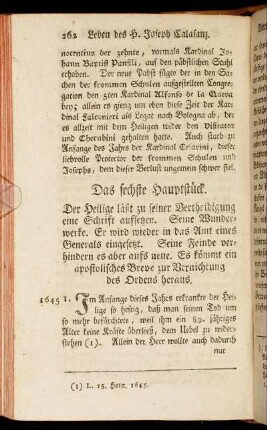 262 Leben des H. Joseph Calasanz.
nocentius der zehnte, vormals Kardinal Jo-
hann Baptist Pamfili, auf den päbstlichen Stuhl
erhoben. Der neue Pabst fügte der in den Sa-
chen der frommen Schulen aufgestellten Congre-
gation den 5ten Kardinal Alfonso de la Queva
bey; allein es gieng um eben diese Zeit der Kar-
dinal Falconieri als Legat nach Bologna ab, der
es allzeit mit dem Heiligen wider den Visitator
und Cherubini gehalten hatte. Auch starb zu
Anfange des Jahrs der Kardinal Cesarini, dieser
liebvolle Protector der frommen Schulen und
Josephs, dem dieser Verlust ungemein schwer fiel.
Das sechste Hauptstück.
Der Heilige läßt zu seiner Vertheidigung
eine Schrift aufsetzen. Seine Wunder-
werke. Er wird wieder in das Amt eines
Generals eingesetzt. Seine Feinde ver-
hindern es aber aufs neue. Es kömmt ein
apostolisches Breve zur Vernichtung
des Ordens heraus.
1645 1. Im Anfange dieses Jahrs erkrankte der Hei-
lige so heftig, daß man seinen Tod um
so mehr befürchtete, weil ihm ein 89. jähriges
Alter keine Kräfte überließ, dem Uebel zu wider-
stehen (1). Allein der Herr wollte auch dadurch
nur
(1) L. 15. Horn. 1645.